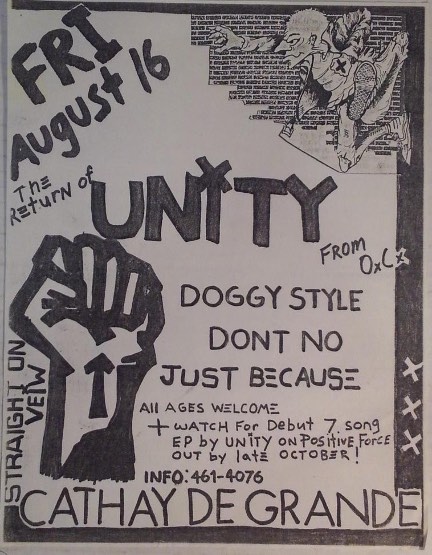 FRI
AUGUST 16
THE
RETURN OF
UNITY
FROM
OxCx
DOGGY STYLE
DONT NO
JUST BECAUSE
STRAIGHT ON
VEIW
All AGES WELCOME
+ WATCH FOR DEBUT 7 SONG
EP BY UNITY ON POSITIVE FORCE
OUT BY LATE OCTOBER!
INFO: 461-4076
XXX
CATHAY DE GRANDE